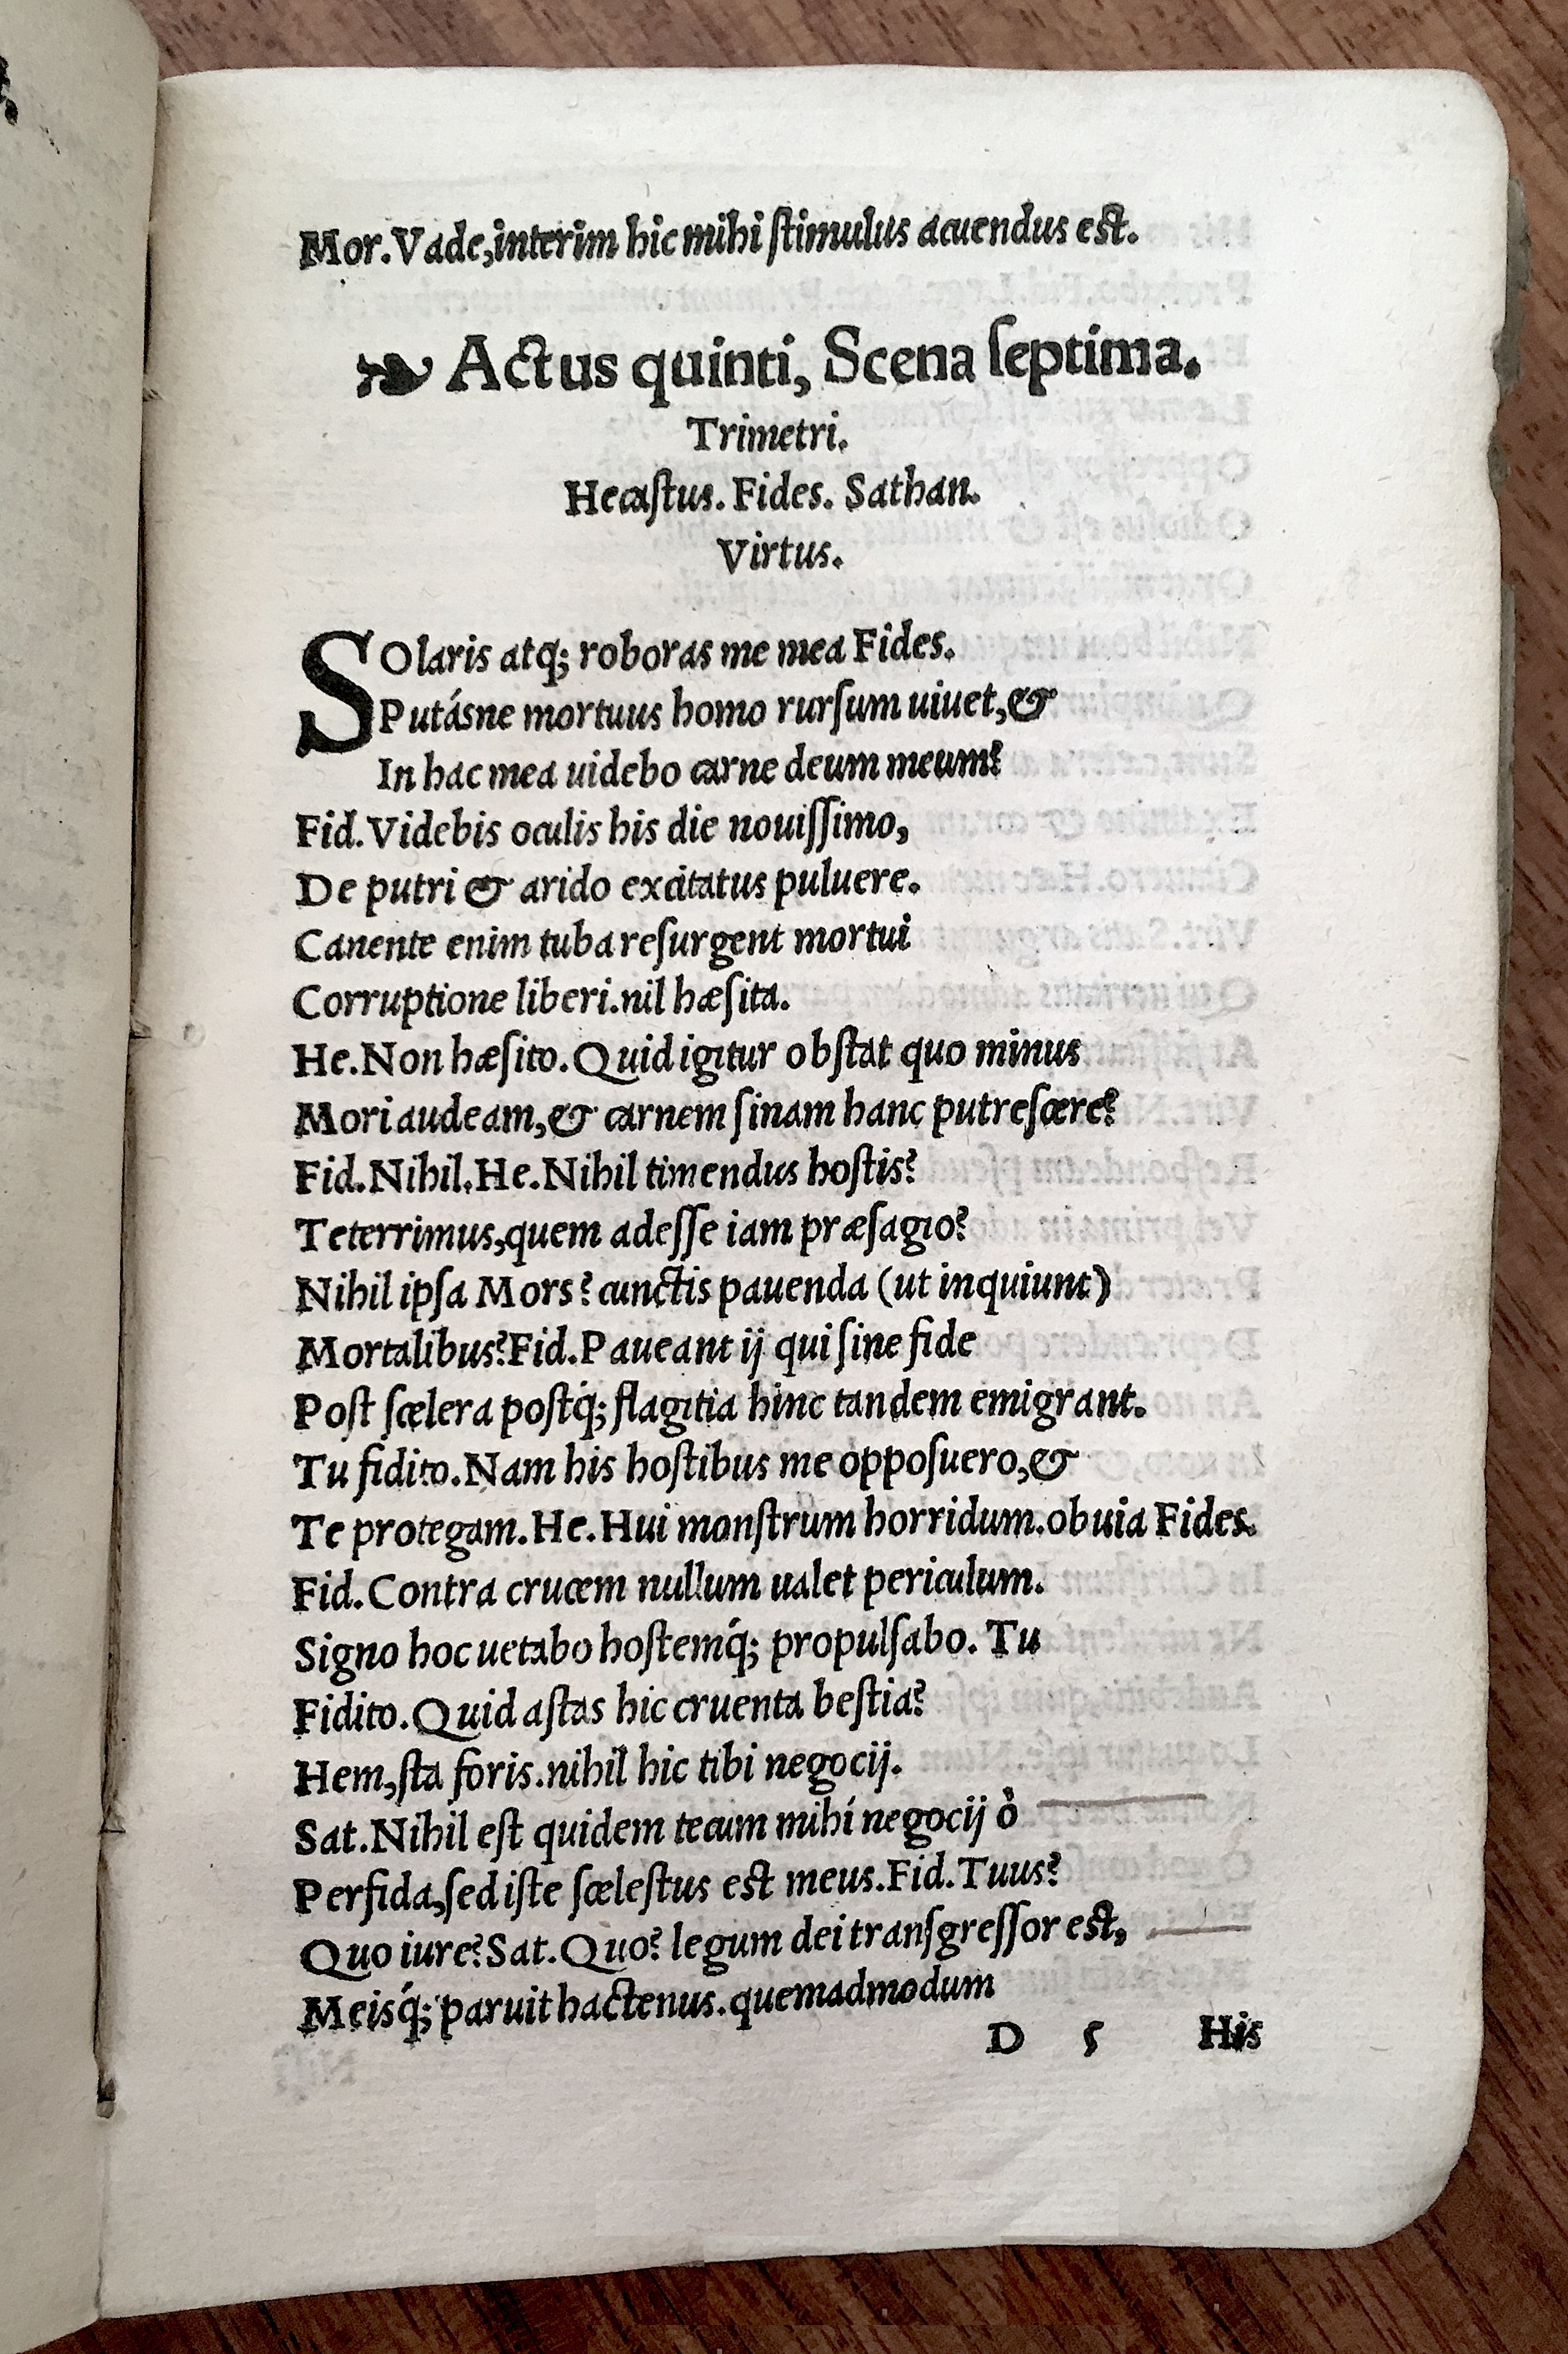 Mor. Vade, interim hic mihi ſtimulus acuendus eſt.
❧ Actus quinti, Scena ſeptima.
Trimetri.
Hecaſtus. Fides. Sathan.
Virtus.
SOlaris atq; roboras me mea Fides.
Putásne mortuus homo rurſum uiuet, &
In hac mea uidebo carne deum meum?
Fid. Videbis oculis his die nouiſſimo,
De putri & arido excitatus puluere.
Canente enim tuba reſurgent mortui
Corruptione liberi. nil hæſita.
He. Non hæſito. Quid igitur obſtat quo minus
Mori audeam, & carnem ſinam hanc putreſcere?
Fid. Nihil. He. Nihil timendus hoſtis?
Teterrimus, quem adeſſe iam præſagio?
Nihil ipſa Mors? cunctis pauenda (ut inquiunt)
Mortalibus? Fid. Paueant ij qui ſine fide
Poſt ſcelera poſtq́; flagitia hinc tandem emigrant.
Tu fidito. Nam his hoſtibus me oppoſuero, &
Te protegam. He. Hui monſtrum horridum. obuia Fides.
Fid. Contra crucem nullum ualet periculum.
Signo hoc uetabo hoſtemq́; propulſabo. Tu
Fidito. Quid aſtas hic cruenta beſtia?
Hem, ſta foris. nihil hic tibi negocij.
Sat. Nihil eſt quidem tecum mihi negocij ô
Perfida, ſed iſte ſceleſtus eſt meus. Fid. Tuus?
Quo iure? Sat. Quo? legum dei tranſgreſſor eſt,
Meisq́; paruit hactenus. quemadmodum
D 5 His